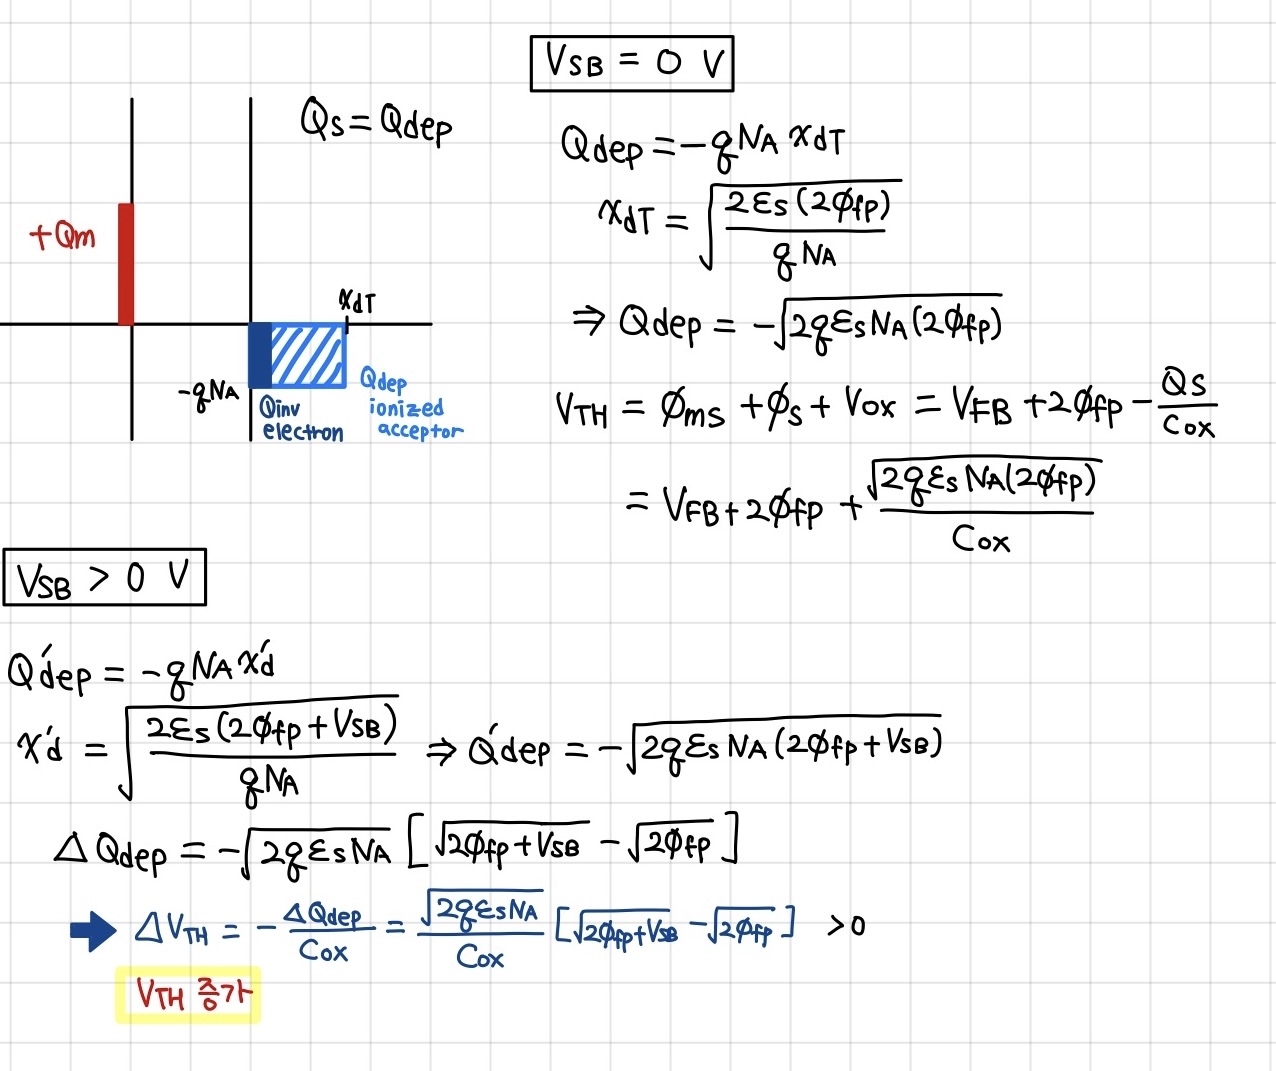 V_SB = 0 V
Qs = Qdep
+Qm
x_dT
-qN_A
Qinv
electron
Qdep
ionized
acceptor
Qdep = -qN_A x_dT
x_dT = √(2εs(2φfp) / qN_A)
⇒ Qdep = -√(2qεsN_A(2φfp))
V_TH = φms + φs + Vox = V_FB + 2φfp - Qs/Cox
= V_FB + 2φfp + √(2qεsN_A(2φfp)) / Cox
V_SB > 0 V
Q'dep = -qN_A x'd
x'd = √(2εs(2φfp + V_SB) / qN_A) ⇒ Q'dep = -√(2qεsN_A(2φfp + V_SB))
ΔQdep = -√(2qεsN_A) [√(2φfp + V_SB) - √(2φfp)]
➡ ΔV_TH = -ΔQdep/Cox = √(2qεsN_A)/Cox [√(2φfp + V_SB) - √(2φfp)] > 0
V_TH 증가